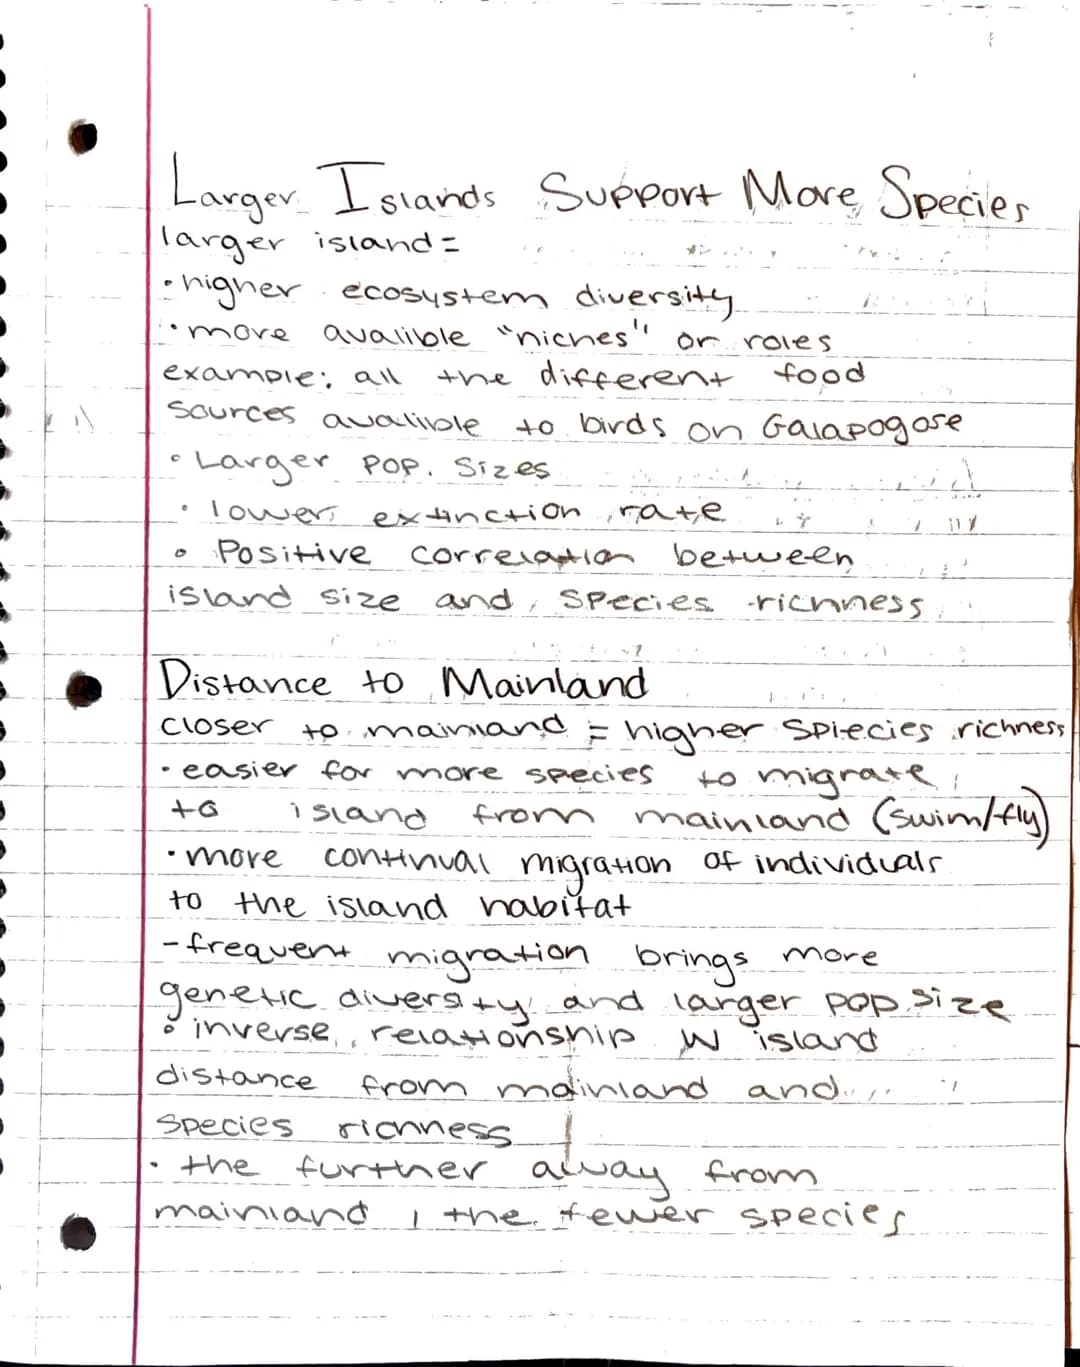 Larger Islands Support More Species
larger island=
• higher ecosystem diversity
• more avalible "niches" or roles
example: all the different food
Sources avalible to birds on Galapogose
• Larger pop. sizes
• lower extinction rate
• Positive correlation between
island size and species richness
Distance to Mainland
closer to mainland = higher Spiecies richness
• easier for more species to migrate
to island from mainland (swim/fly)
• more continual migration of individuals
to the island habitat
- frequent migration brings more
genetic diversity and larger pop. size
• inverse relationship w island
distance from mainland and
species richness
• the further away from
mainland, the fewer species